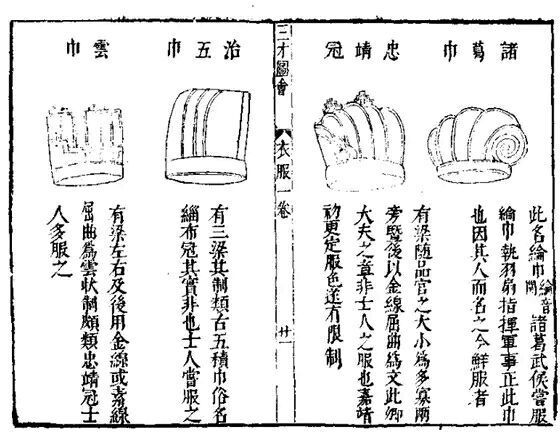 諸葛巾
此名綸巾綸音關諸葛武侯嘗服
綸巾執羽扇指揮軍事正此巾
也因其人而名之今鮮服者
忠靖冠
有梁隨品官之大小爲多寡兩
旁暨後以金線屈曲爲文此卿
大夫之章非士人之服也嘉靖
初更定服色遂有限制
三才圖會
衣服一卷
廿一
治五巾
有三梁其制類古五積巾俗名
緇布冠其實非也士人嘗服之
雲巾
有梁左右及後用金線或素線
屈曲爲雲狀制頗類忠靖冠士
人多服之